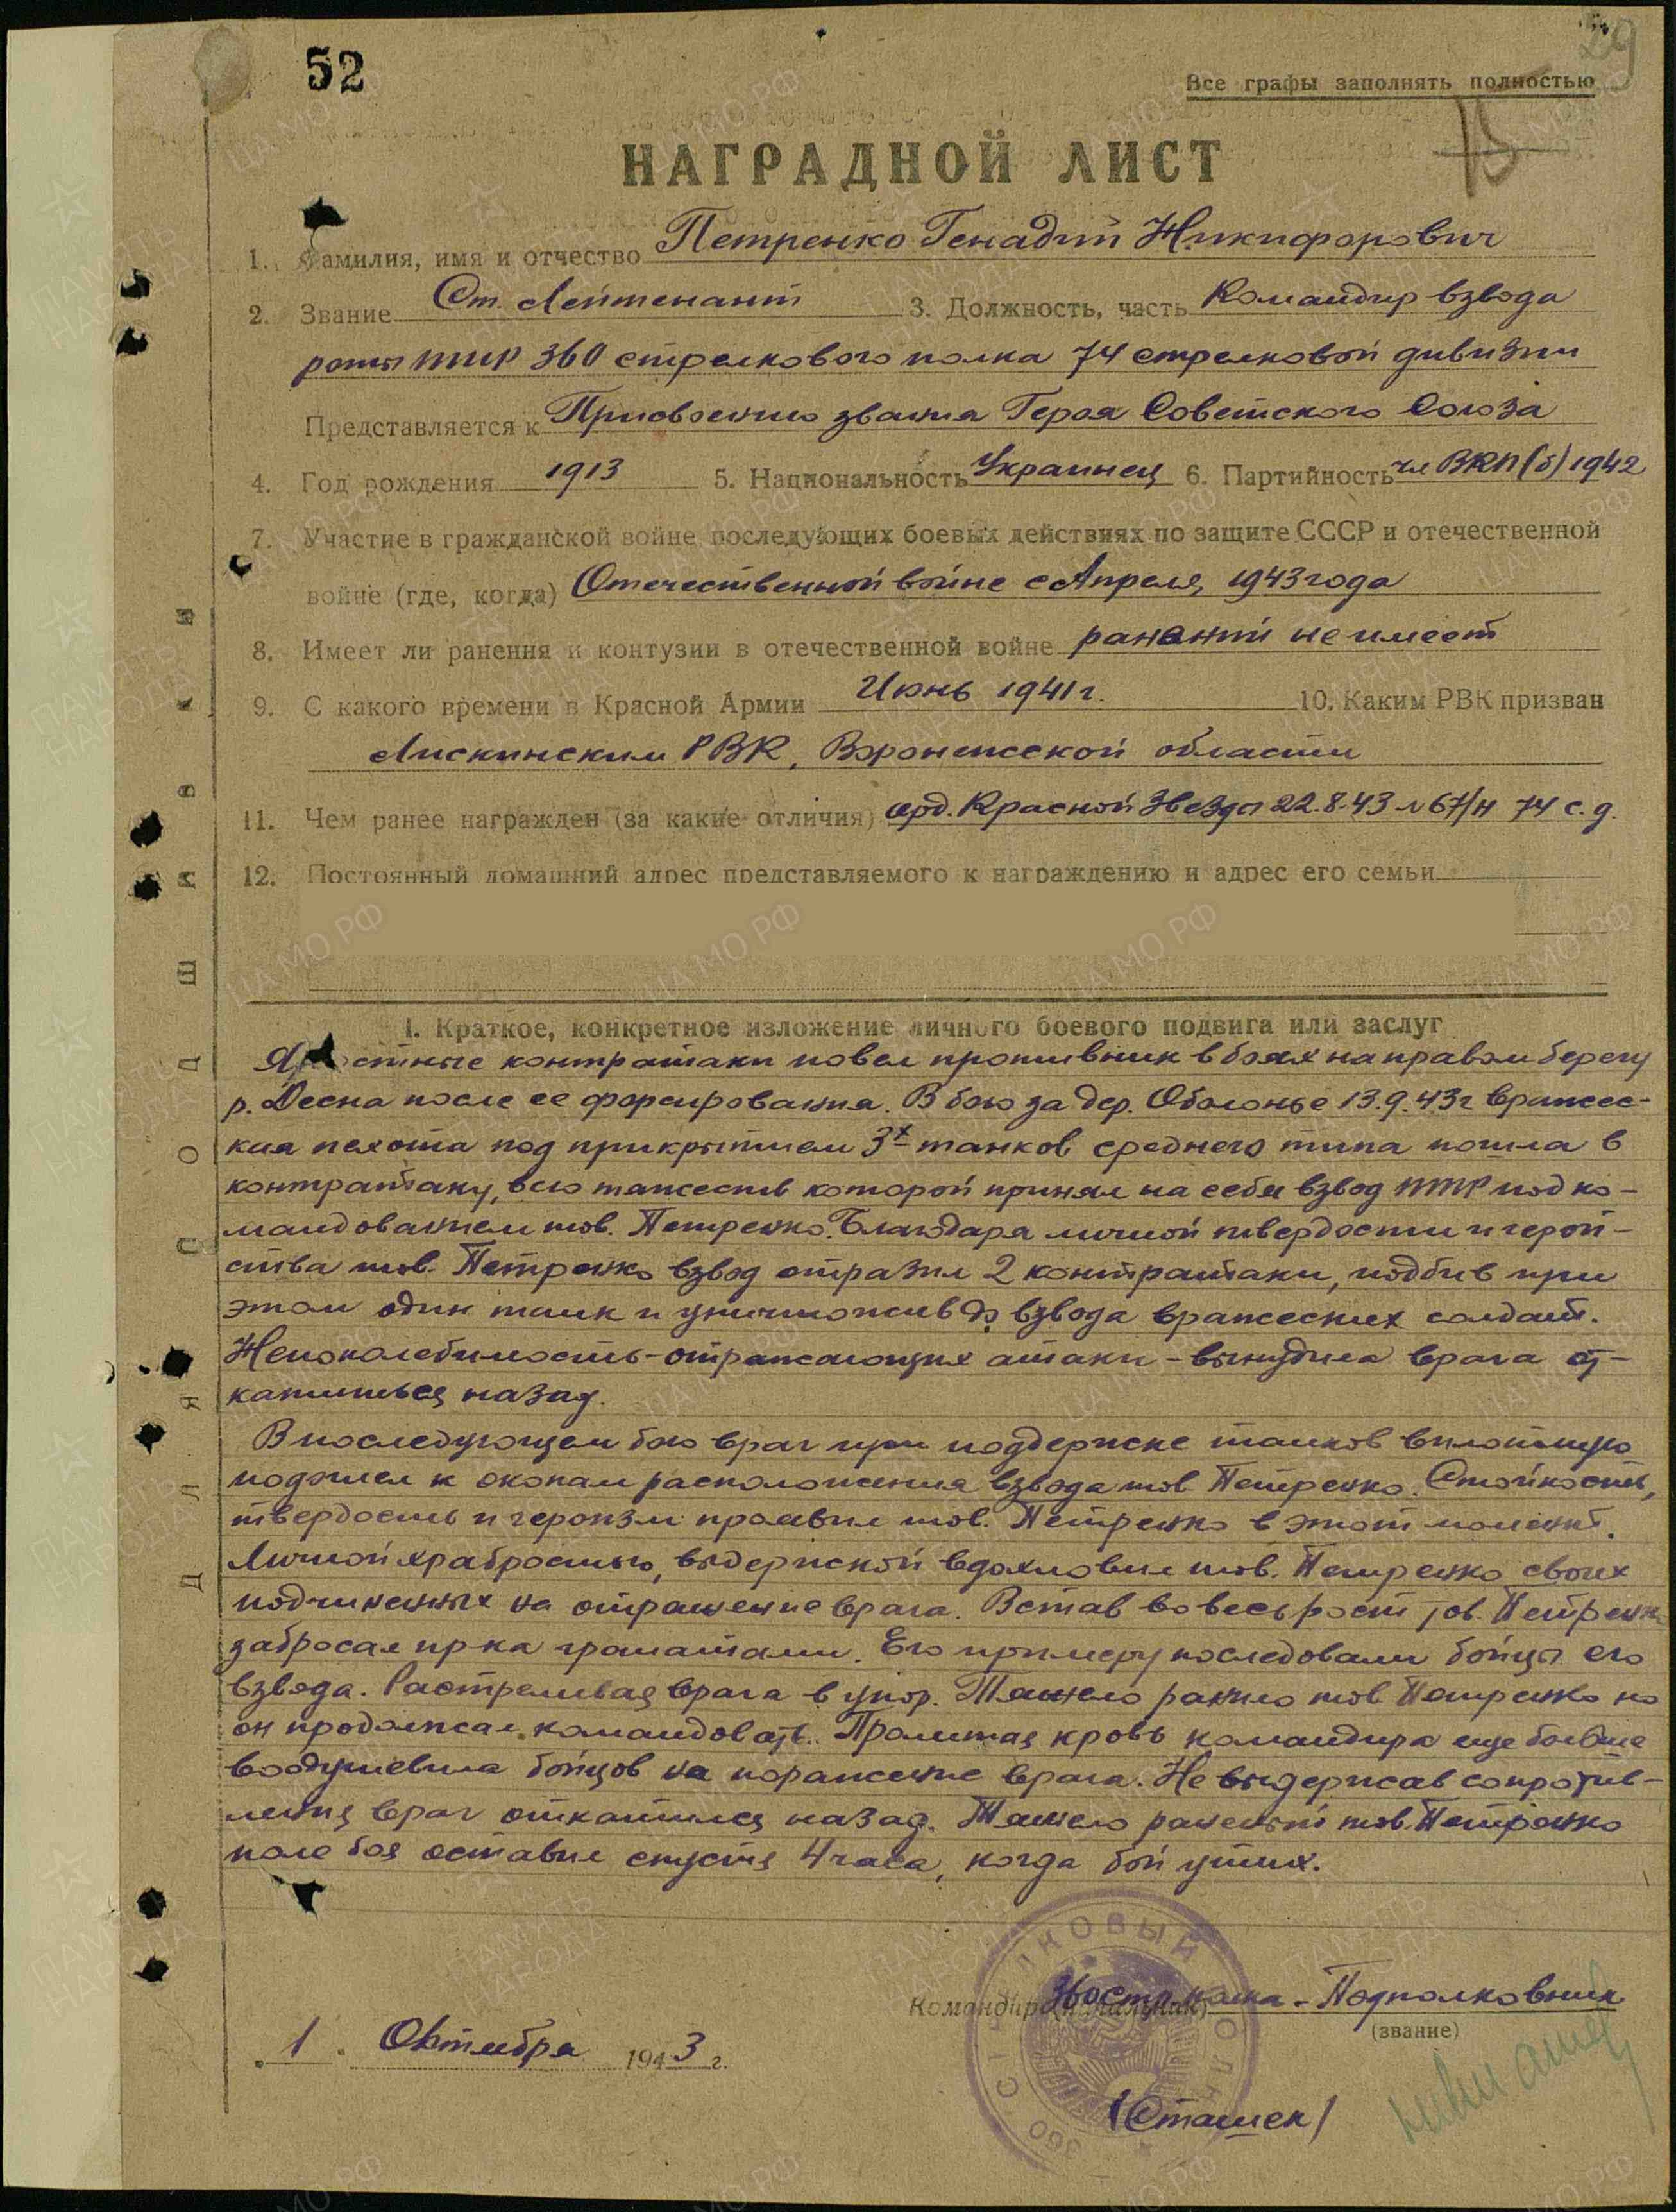 52
29
Все графы заполнять полностью
15
НАГРАДНОЙ ЛИСТ
1. Фамилия, имя и отчество Петренко Генадий Никифорович
2. Звание Ст. Лейтенант 3. Должность, часть Командир взвода
роты ПТР 360 стрелкового полка 74 стрелковой дивизии
Представляется к Присвоению звания Героя Советского Союза
4. Год рождения 1913 5. Национальность Украинец 6. Партийность чл ВКП(б) 1942
7. Участие в гражданской войне последующих боевых действиях по защите СССР и отечественной
войне (где, когда) Отечественной войне с Апреля, 1943 года
8. Имеет ли ранения и контузии в отечественной войне ранений не имеет
9. С какого времени в Красной Армии Июнь 1941 г. 10. Каким РВК призван
Лискинским РВК, Воронежской области
11. Чем ранее награжден (за какие отличия) орд. Красной Звезды 22.8.43 №67/н 74 с.д.
12. Постоянный домашний адрес представляемого к награждению и адрес его семьи
I. Краткое, конкретное изложение личного боевого подвига или заслуг
Яростные контратаки повел противник в боях на правом берегу
р. Десна после ее форсирования. В бою за дер. Оболонье 13.9.43г вражес-
кая пехота под прикрытием 3х танков среднего типа пошла в
контратаку, всю тяжесть которой принял на себя взвод ПТР под ко-
мандованием тов. Петренко. Благодаря личной твердости и герой-
ства тов. Петренко взвод отразил 2 контратаки, подбив при
этом один танк и уничтожив до взвода вражеских солдат.
Непоколебимость - отражающих атаки - вынудила врага от-
катиться назад.
В последующем бою враг при поддержке танков вплотную
подошел к окопам расположения взвода тов Петренко. Стойкость,
твердость и героизм проявил тов. Петренко в этот момент.
Личной храбростью, выдержкой вдохновил тов. Петренко своих
подчиненных на отражение врага. Встав во весь рост тов. Петренко
забросал пр-ка гранатами. Его примеру последовали бойцы его
взвода. Растреливая врага в упор. Тяжело ранило тов Петренко но
он продолжал командовать. Пролитая кровь командира еще больше
воодушевила бойцов на поражение врага. Не выдержав сопротив-
ления враг откатился назад. Тяжело раненый тов. Петренко
поле боя оставил спустя 4 часа, когда бой утих.
Командир (начальник) 360 стр полка - Подполковник
(звание)
"1" Октября 1943 г.
/Сташек/
360 СТРЕЛКОВЫЙ ПОЛК
ДЛЯ ПОДШИВКИ
ПАМЯТЬ НАРОДА
ЦА МО РФ